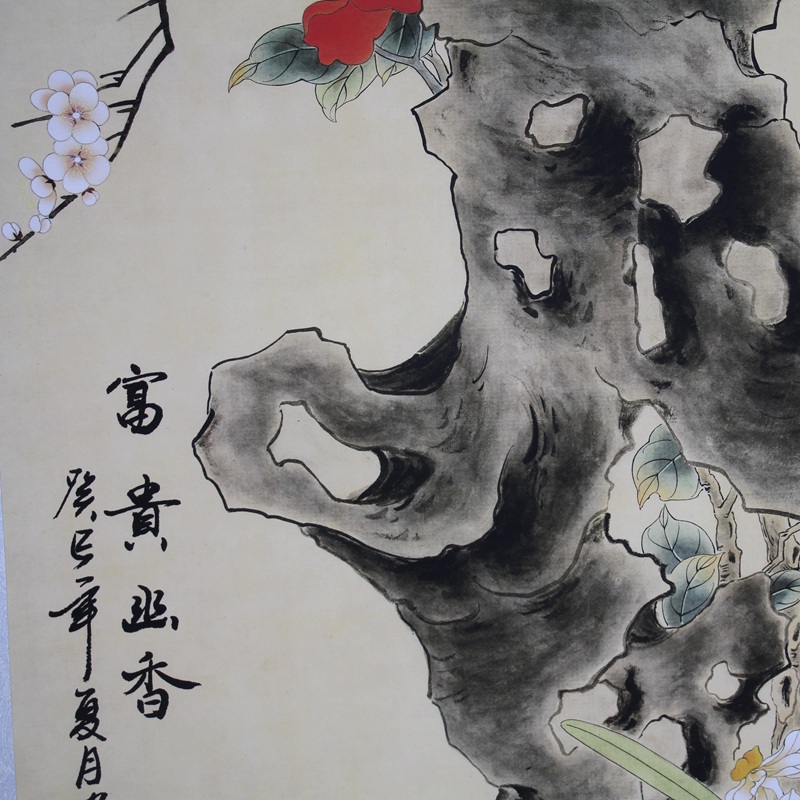 富貴幽香
癸巳年夏月